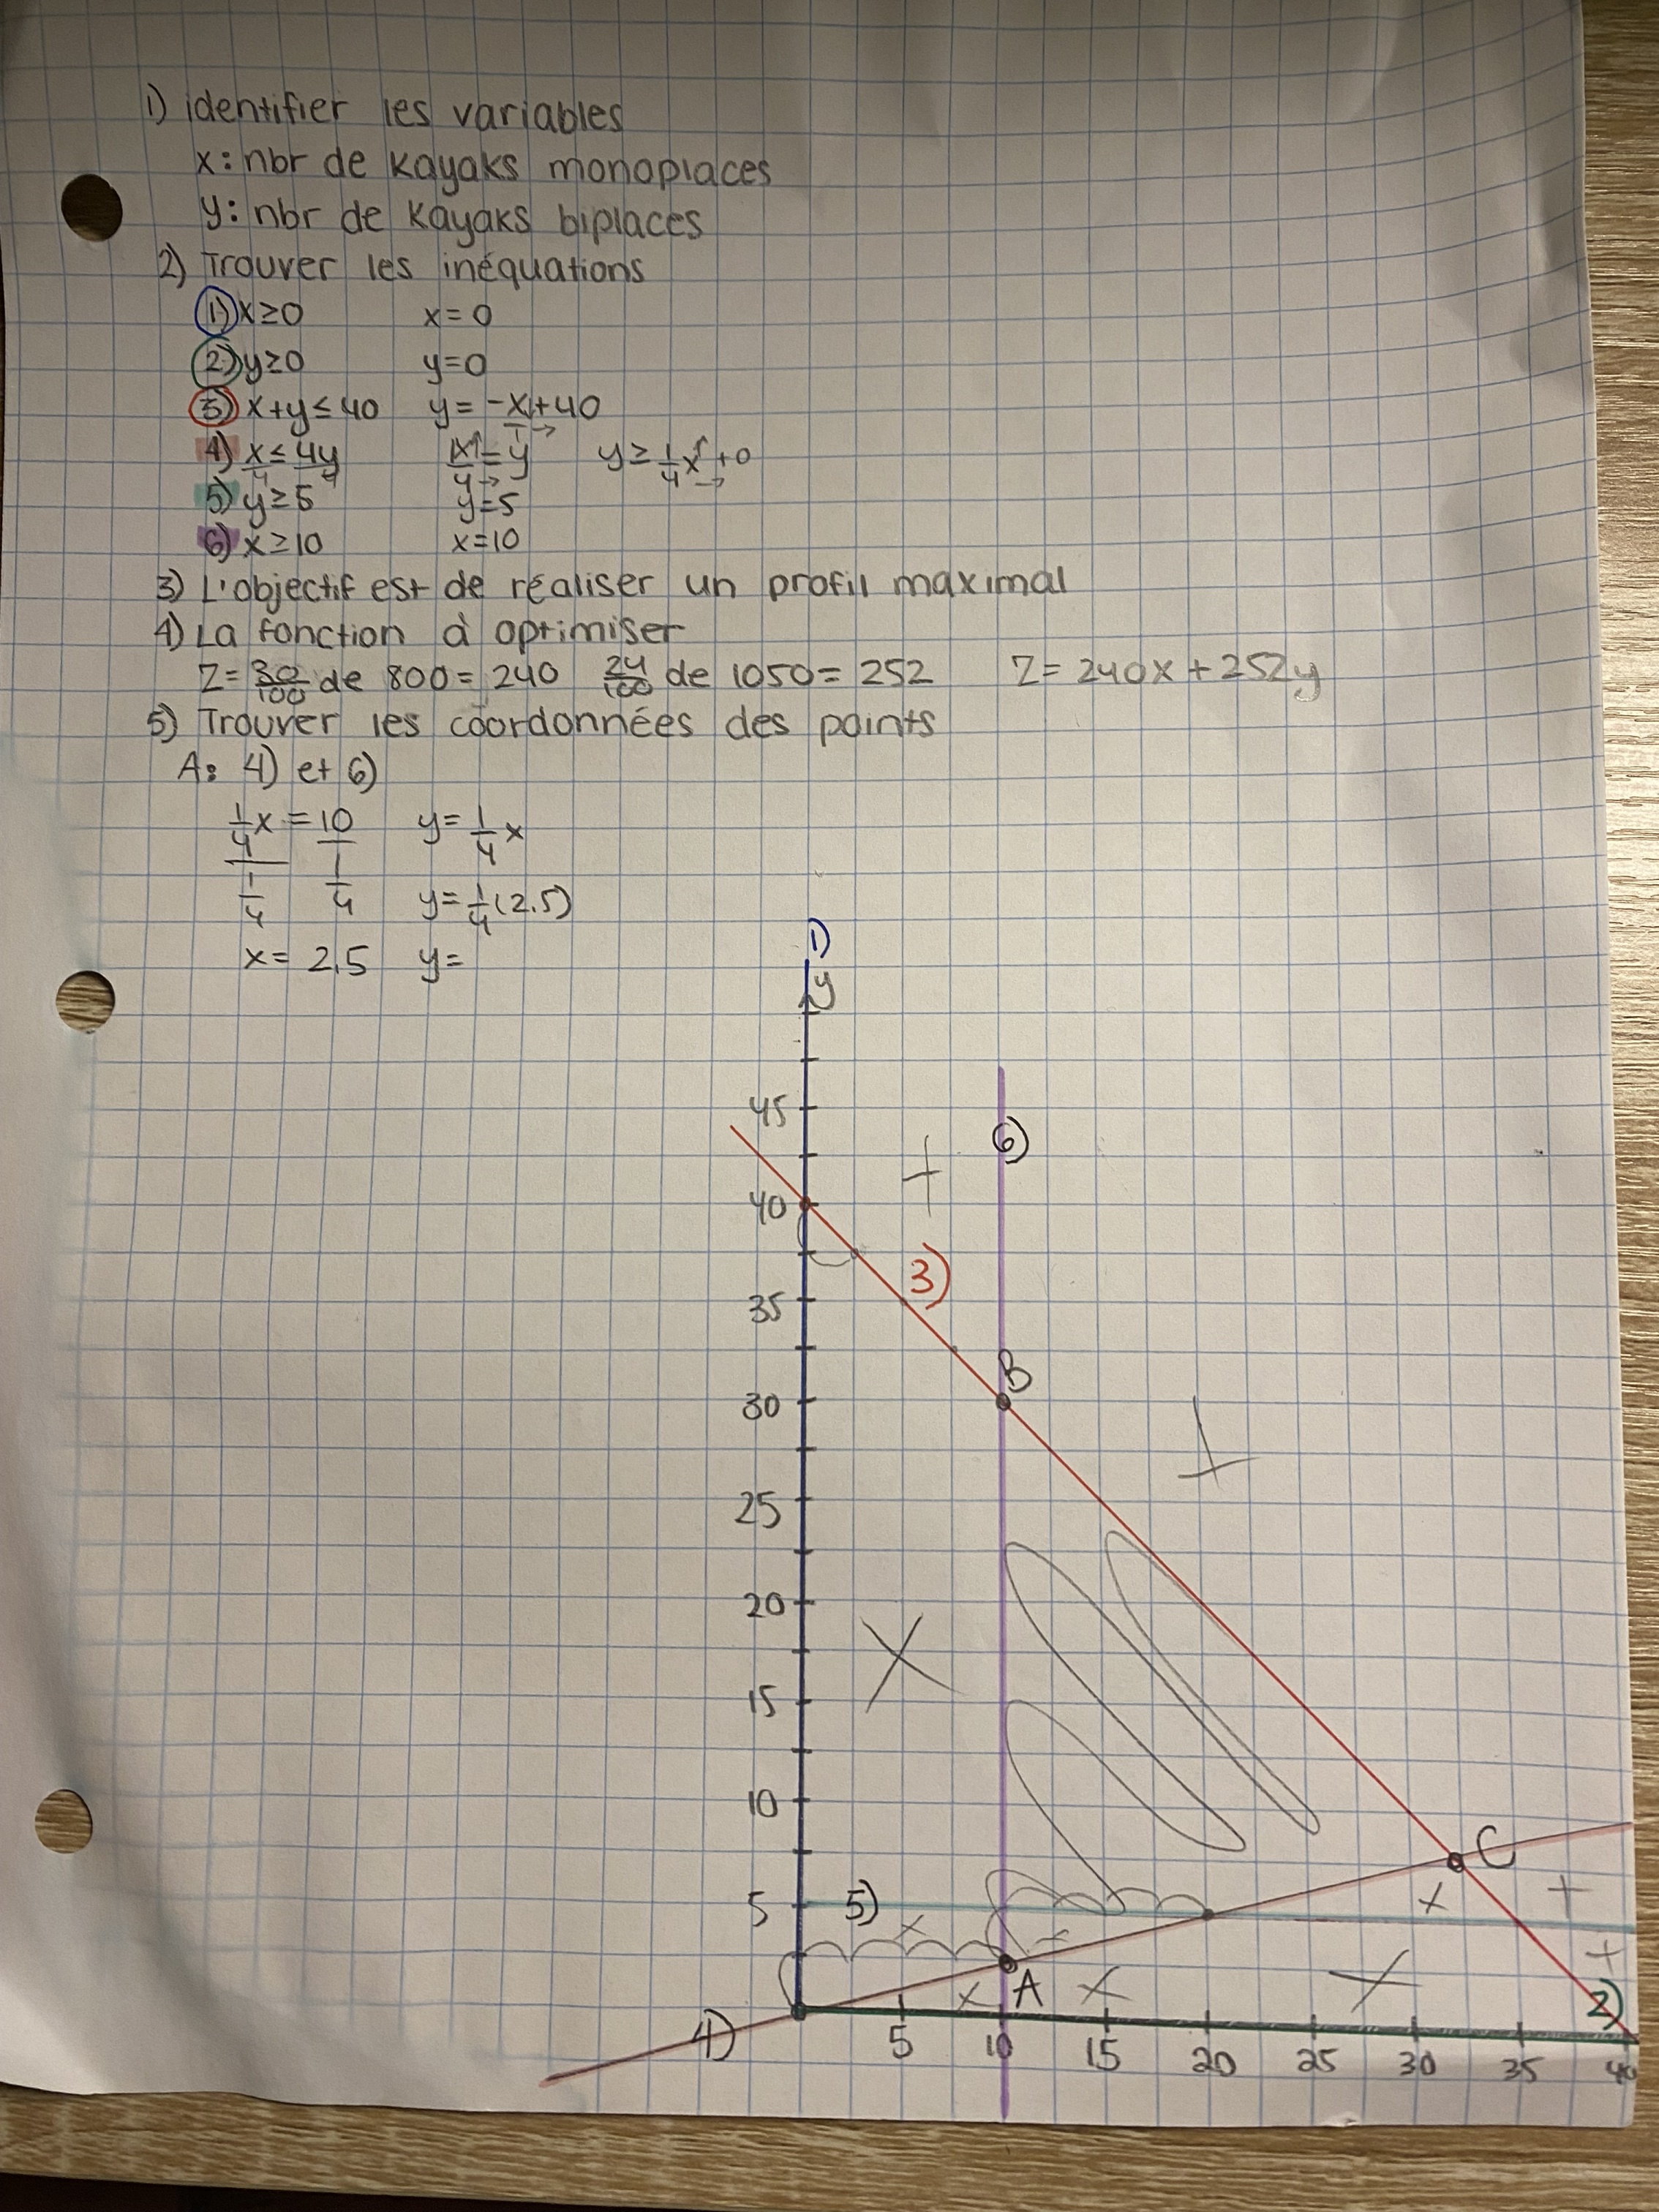 1) identifier les variables
x: nbr de kayaks monoplaces
y: nbr de kayaks biplaces
2) Trouver les inéquations
1) x≥0 x=0
2) y≥0 y=0
3) x+y≤40 y=-x+40
4) x/4≤4y/4 1x/4=y y≥1/4x+0
5) y≥5 y=5
6) x≥10 x=10
3) L'objectif est de réaliser un profil maximal
4) La fonction à optimiser
Z=30/100 de 800=240 24/100 de 1050=252 Z=240x+252y
5) Trouver les coordonnées des points
A: 4) et 6)
1/4x=10 y=1/4x
1/4 1/4 y=1/4(2,5)
x=2,5 y=
1)
y
45
6)
40
3)
35
B
30
25
20
15
10
C
5 5)
A
4) 2)
5 10 15 20 25 30 35 40